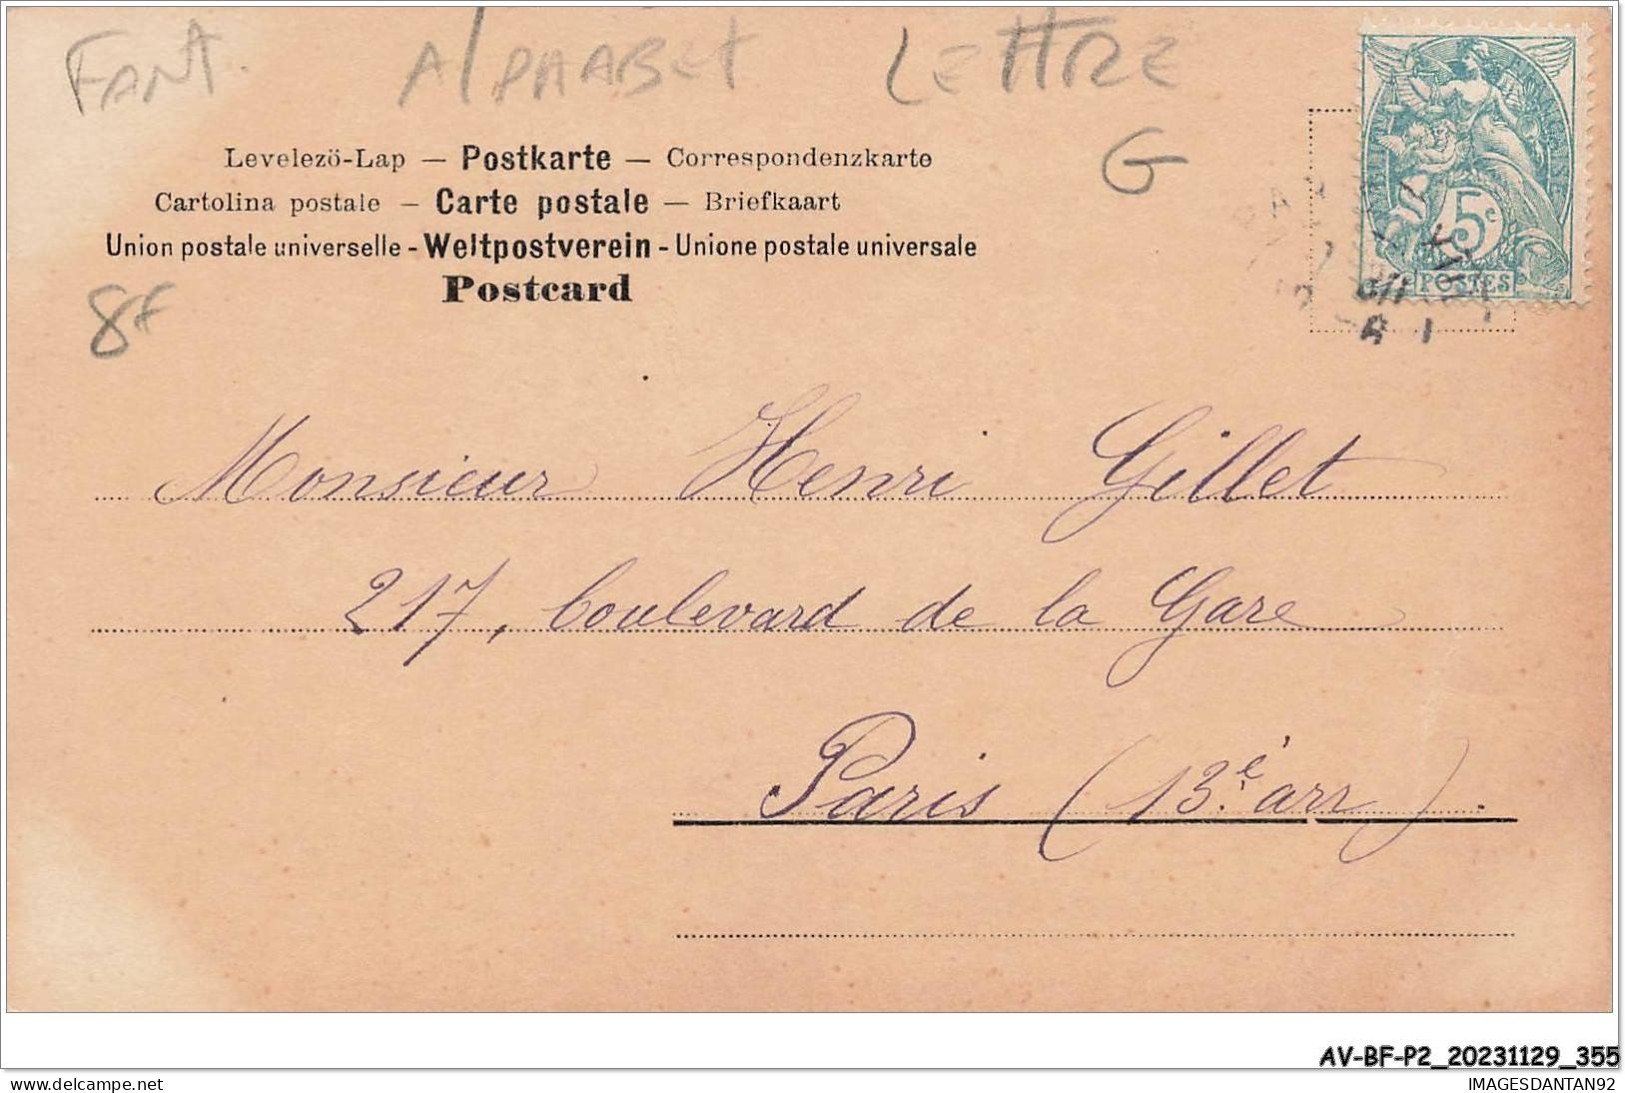 FANT. ALPHABET LETTRE
G
Levelezö-Lap — Postkarte — Correspondenzkarte
Cartolina postale — Carte postale — Briefkaart
Union postale universelle - Weltpostverein - Unione postale universale
Postcard
8F
5c
POSTES
Monsieur Henri Gillet
217, boulevard de la Gare
Paris (13.è arr).
AV-BF-P2_20231129_355
delcampe.net
IMAGESDANTAN92